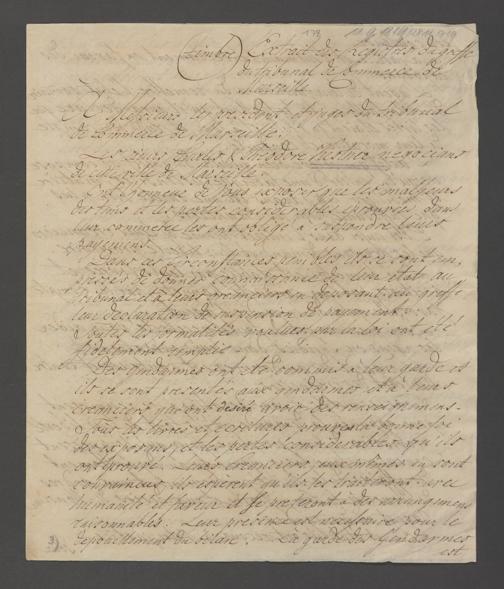 (timbre) Extrait des Registres du greffe
du tribunal de Commerce de
Marseille
A Messieurs les president et juges du tribunal
de commerce de Marseille.
Les sieurs Charles & Théodore negocians
de cette ville de Marseille.
Ont l'honneur de vous exposer que les malheurs
des tems et les pertes considérables éprouvées dans
leur commerce les ont obligé à suspendre leurs
payemens.
Dans ces circonstances penibles ils se sont em-
pressés de donner connoissance de leur état au
tribunal et à leurs creanciers en deposant au greffe
leur declaration de suspension de payement.
Toutes les formalités voulues par la loi ont été
fidelement remplies.
Des gendarmes ont été commis à leur garde et
ils se sont presentés aux gendarmes et à leurs
creanciers qui ont desiré avoir des renseignemens.
Tous les livres et ecritures prouvent la bonne foi
des exposans, et les pertes considerables qu'ils
ont éprouvé. Leurs creanciers eux mêmes en sont
convaincus, ils esperent qu'ils les traiteront avec
humanité et et se preteront à des arrangemens
raisonnables. Leur présence est necessaire pour le
depouillement du bilan. La garde des Gendarmes
est
3)